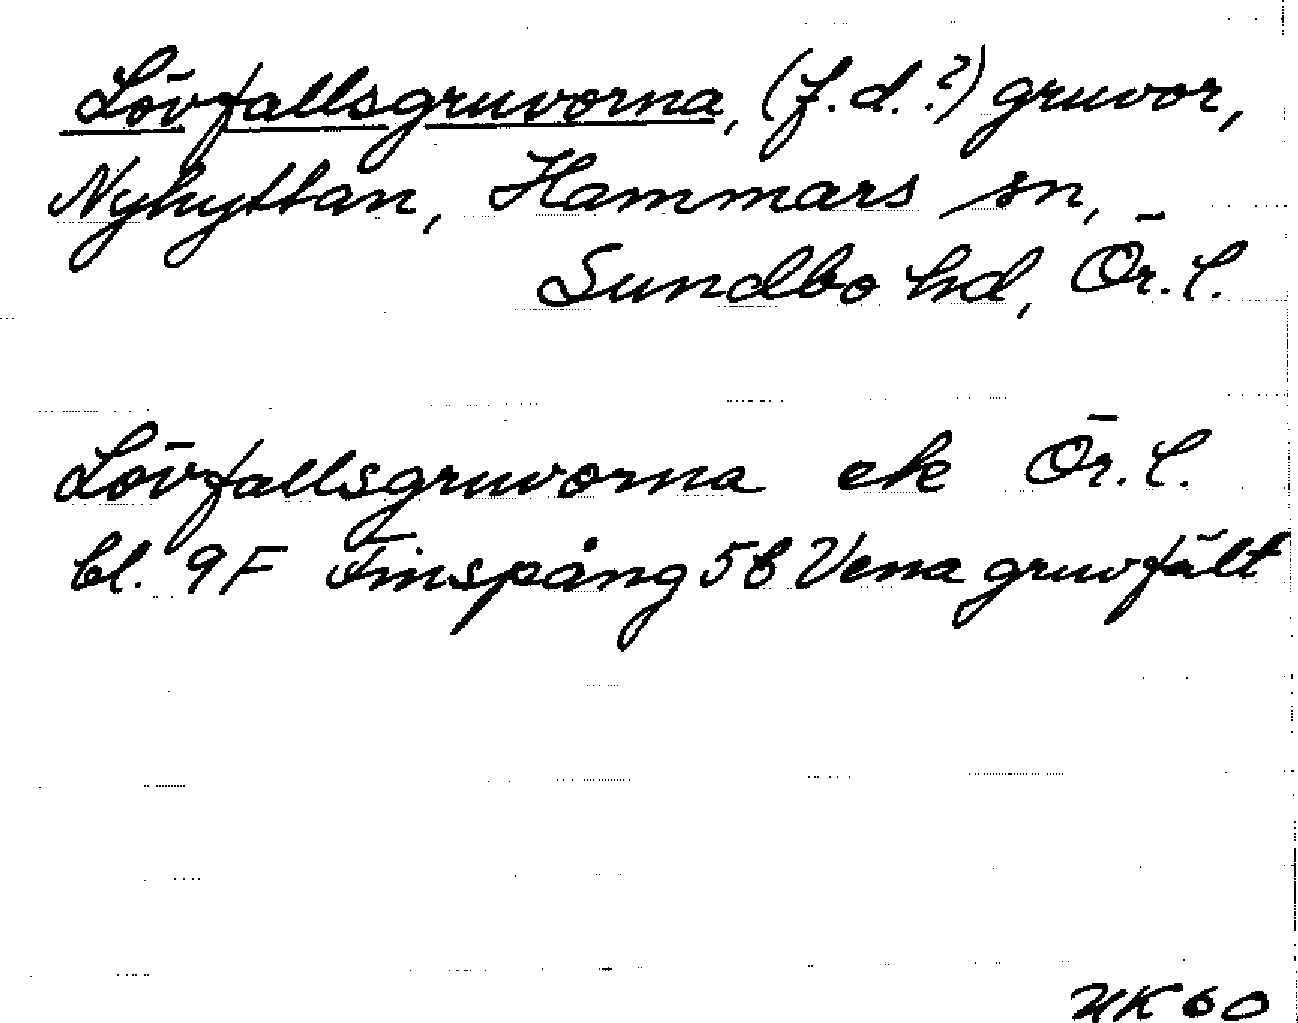 Lövfallsgruvorna, (f.d.?) gruvor,
Nyhyttan, Hammars sn,
Sundbo hd, Ör.l.
Lövfallsgruvorna ek Ör.l.
bl. 9F Finspång 5b Vena gruvfält
HK60